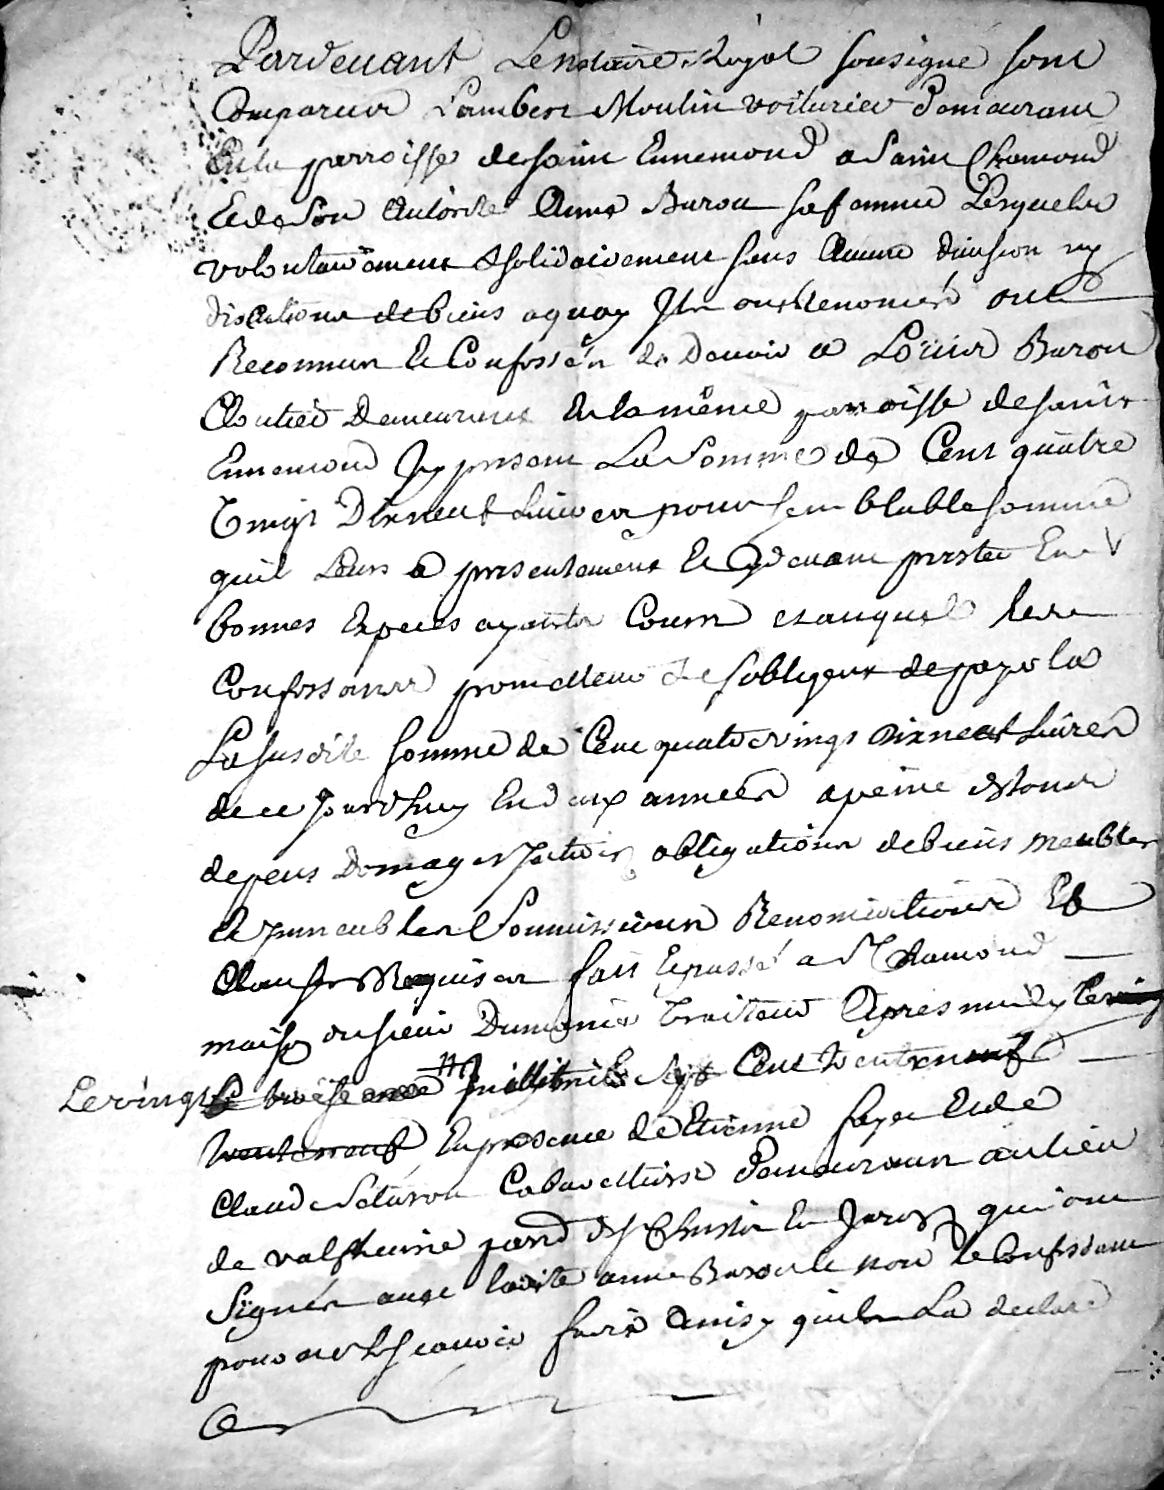 Pardevant Le notaire Royal sousigné sont
Comparus Lambert Moulin voiturier Demeurant
En la parroisse de saint Ennemond a Saint Chamond
Et de son Autorité Anne Buron sa femme Lesquels
volontairement & solidairement sans Aucune division ny
discutions de biens aquoy Ils ont Renoncés ont
Reconnus & Confessés de Devoir a Loüis Buron
Cloutier Demeurant En la même parroisse de saint
Ennemond Icy present La Somme de Cent quatre
Vingt Dixneuf Livres pour semblable somme
quil Leurs a presentement & Cydevant prestée En
bonnes Especes ayants Cours et auquel les
Confessants promettent & sobligent de payer la
La susdite somme de Cent quatrevingt Dixneuf Livres
de ce Jourdhuy En deux années a peine de tous
depens Domages Interets obligations de biens meubles
& Immeubles Soumissions Renonciations Et
Clauses Requises fait & passé a St Chamond
maison du sieur Traiteur Apres midy
Le vingt mil sept Cent trenteneuf
trenteneuf En presence de Etienne faye Et de
Claude Cabarettiers Demeurant au lieu
de valfleurie par St Christo En Jarez qui ont
Signés avec ladite anne Buron & non le Confessant
pour ne sçavoir faire Ainsy quil La declaré